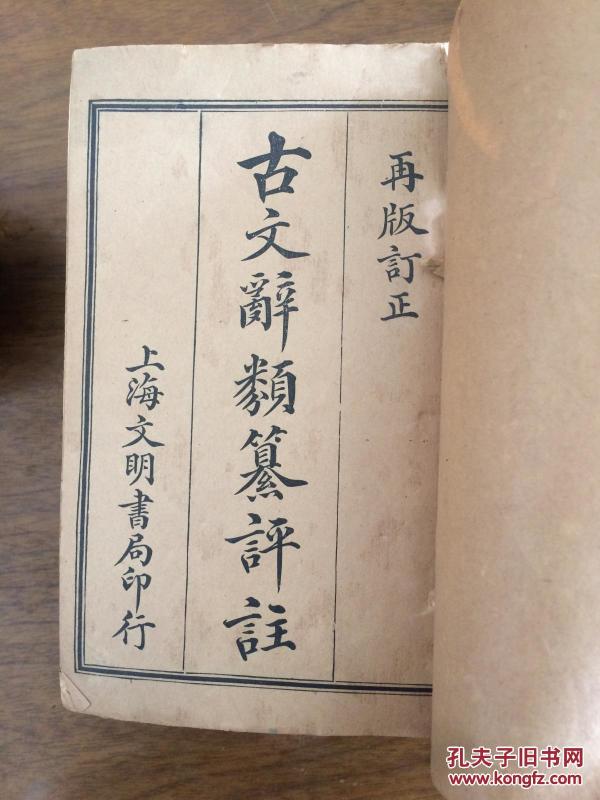 再版訂正
古文辭類纂評註
上海文明書局印行
孔夫子旧书网
www.kongfz.com